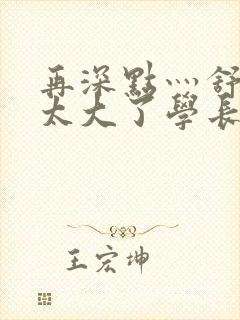 再深點灬舒
太大了學長
王宏坤